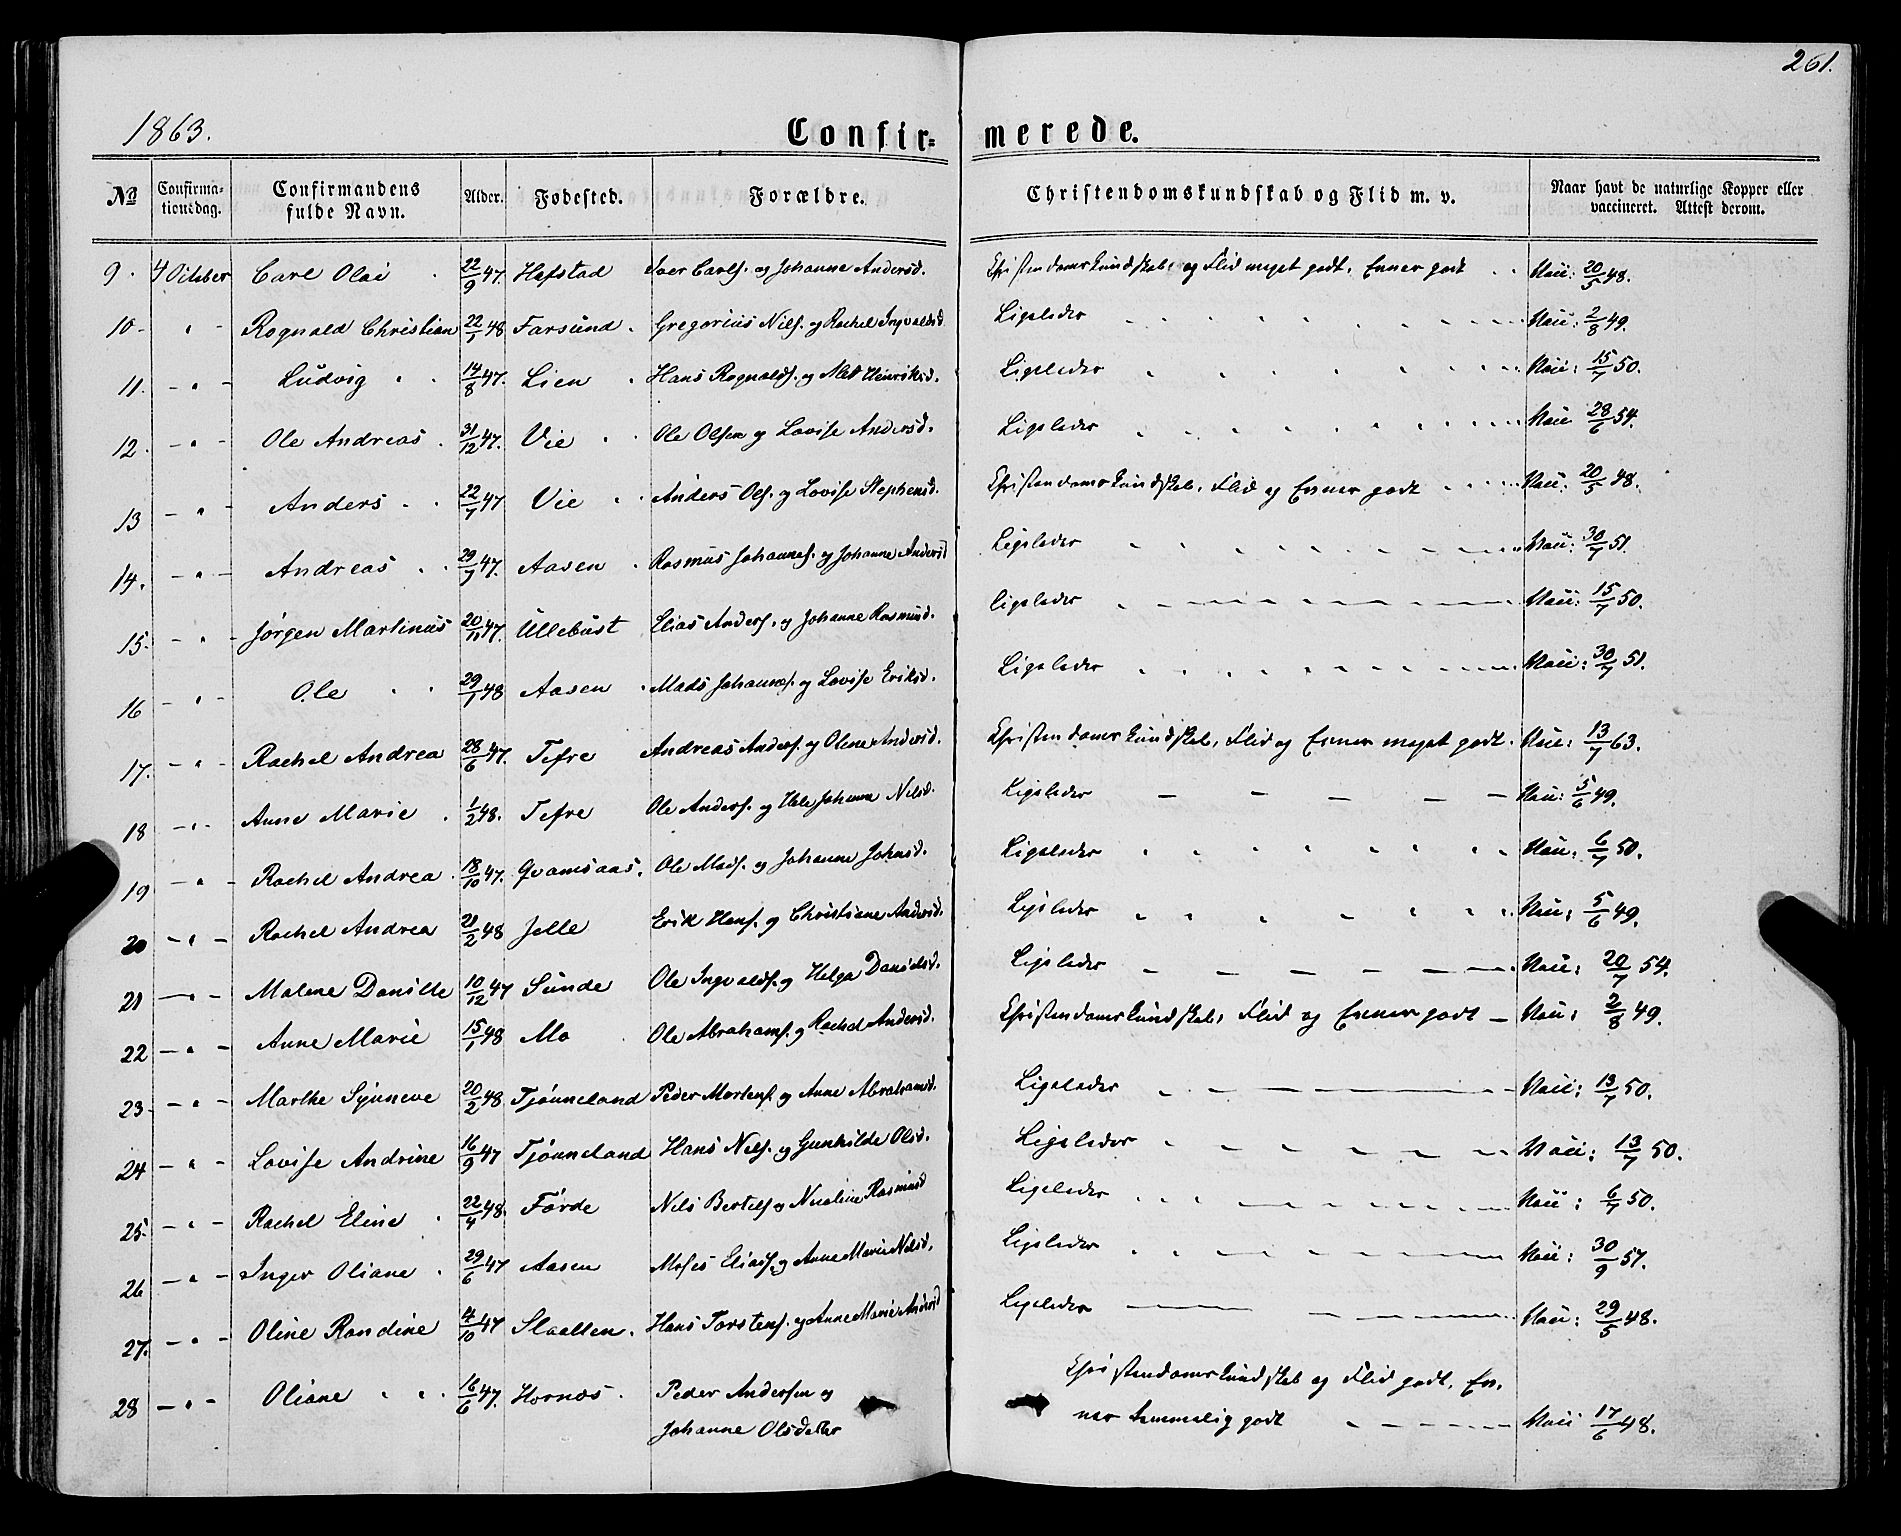 261.
1863.
Confir= merede.
No Confirma-tionsdag. Confirmandens fulde Navn. Alder. Fødested. Forældre. Christendomskundskab og Flid m. v. Naar havt de naturlige Kopper eller vaccineret. Attest derom.
9. 4 October Carl Olai 22/9 47. Hafstad Iver Carls. og Johanne Andersd. Christendomskundskab og Flid meget godt, Evner godt Vacc: 20/5 48.
10. " Rognald Christian 22/1 48 Farsund. Gregorius Nils. og Rachel Ingvaldsd. Ligeledes Vacc: 2/8 49.
11. " Ludvig 14/8 47. Lien Hans Rognalds. og Met Henriksd. Ligeledes Vacc: 15/7 50.
12. " Ole Andreas 31/12 47. Vie Ole Olsen og Lovise Andersd. Ligeledes Vacc 28/6 54.
13 " Anders 22/7 47 Vie Anders Ols. og Lovise Stephensd. Christendomskundskab, Flid og Evner godt Vacc: 20/5 48.
14. " Andreas 29/7 47. Aasen Rasmus Johannes. og Johanne Andersd Ligeledes Vacc: 30/7 51.
15. " Jørgen Martinus 20/11 47. Ullebust Elias Anders. og Johanne Rasmusd. Ligeledes Vacc: 15/7 50.
16 " Ole 29/1 48 Aasen Mads Johannes. og Lovise Eriksd. Ligeledes Vacc: 30/7 51.
17. " Rachel Andrea 28/6 47. Tefre Andreas Anders. og Oline Andersd. Christendomskundskab, Flid og Evner meget godt. Vacc: 13/7 63.
18 " Anne Marie 1/2 48. Tefre Ole Anders. og Johanne Nilsd. Ligeledes Vacc: 5/6 49.
19 " Rachel Andrea 18/10 47. Qvamsaas. Ole Mads. og Johanne Johnsd. Ligeledes Vacc: 6/7 50.
20 " Rachel Andrea 21/2 48 Jelle Erik Hans. og Christiane Andersd. Ligeledes Vacc: 5/6 49.
21 " Malene Danille 10/12 47 Sunde Ole Ingvalds. og Helga Danielsd. Ligeledes Vacc: 20/7 54.
22 " Anne Marie 15/1 48 Mo Ole Abrahams. og Rachel Andersd. Christendomskundskab, Flid og Evner godt Vacc: 2/8 49.
23. " Marthe Synneve 20/2 48 Tjønneland Peder Mortens. og Anne Abrahamsd. Ligeledes Vacc: 13/7 50.
24 " Lovise Andrine 16/9 47 Tjønneland Hans Nils. og Gunhilde Olsd. Ligeledes Vacc: 13/7 50.
25. " Rachel Eline 22/4 48. Førde Nils Bertels. og Nicoline Rasmusd Ligeledes Vacc: 6/7 50.
26 " Inger Oliane 29/6 47 Aasen Moses Elias. og Anne Marie Nilsd. Ligeledes Vacc: 30/9 57.
27. " Oline Randine 14/10 47 Slaatten. Hans Torstens. og Anne Marie Andersd Ligeledes Vacc: 29/5 48.
28 " Oliane 16/6 47. Hornæs. Peder Andersen og Christendomskundskab og Flid godt, Ev-
Johanne Olsdatter ner temmelig godt Vacc 17/6 48.